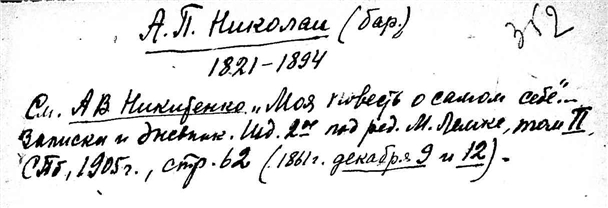 А. П. Николаи (бар.)
352
1821-1894
См. А В Никитенко „Моя повесть о самом себе".-
Записки и дневник. Изд. 2ое под ред. М. Лемке, том II,
СПб, 1905г., стр. 62 (1861г. декабря 9 и 12).